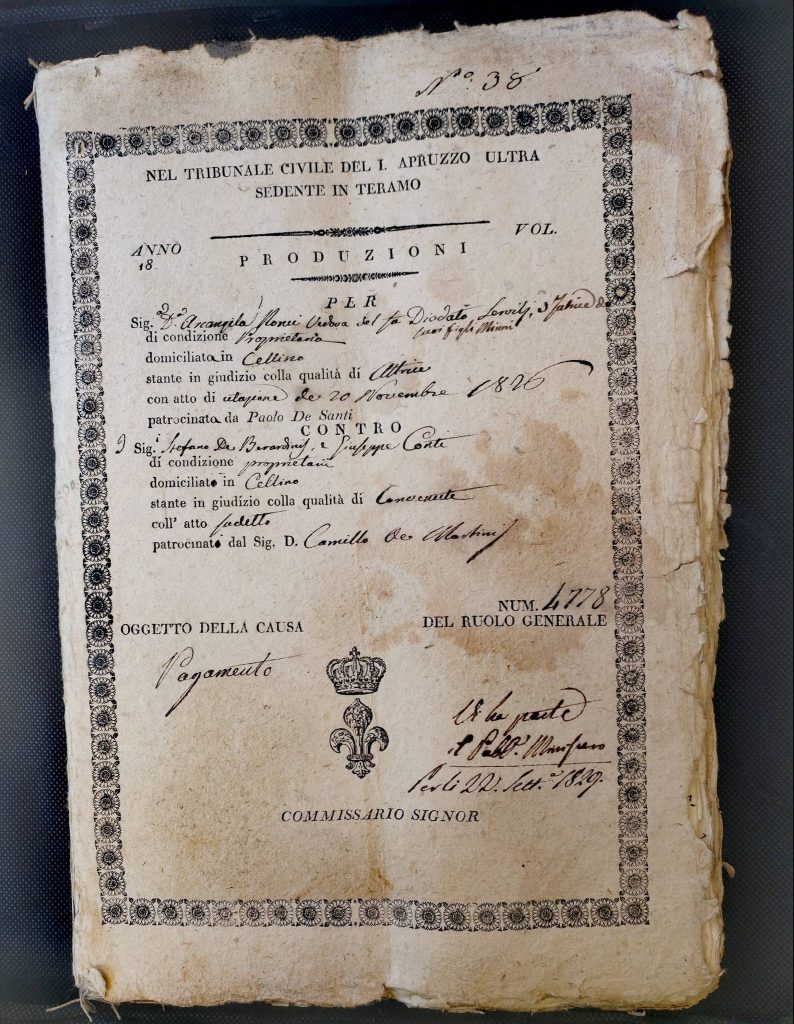 N.º 38
NEL TRIBUNALE CIVILE DEL I. APRUZZO ULTRA
SEDENTE IN TERAMO
ANNO
18
PRODUZIONI
VOL.
PER
Sig.ª D.ª Arcangela Vedova del fu Diodato Servilj, e Tutrice de
suoi figli Minori
di condizione Proprietaria
domiciliata in Cellino
stante in giudizio colla qualità di Attrice
con atto di citazione de 20 Novembre 1826
patrocinata da Paolo De Santi
CONTRO
Sig.i Stefano De Berardinis, e Giuseppe Conti
di condizione proprietarii
domiciliato in Cellino
stante in giudizio colla qualità di Convenute
coll' atto sudetto
patrocinati dal Sig. D. Camillo de Martinis
OGGETTO DELLA CAUSA
NUM. 4778
DEL RUOLO GENERALE
Pagamento
Vi ha parte
il Pubb.º Ministero
Per li 22. Sett.e 1829.
COMMISSARIO SIGNOR